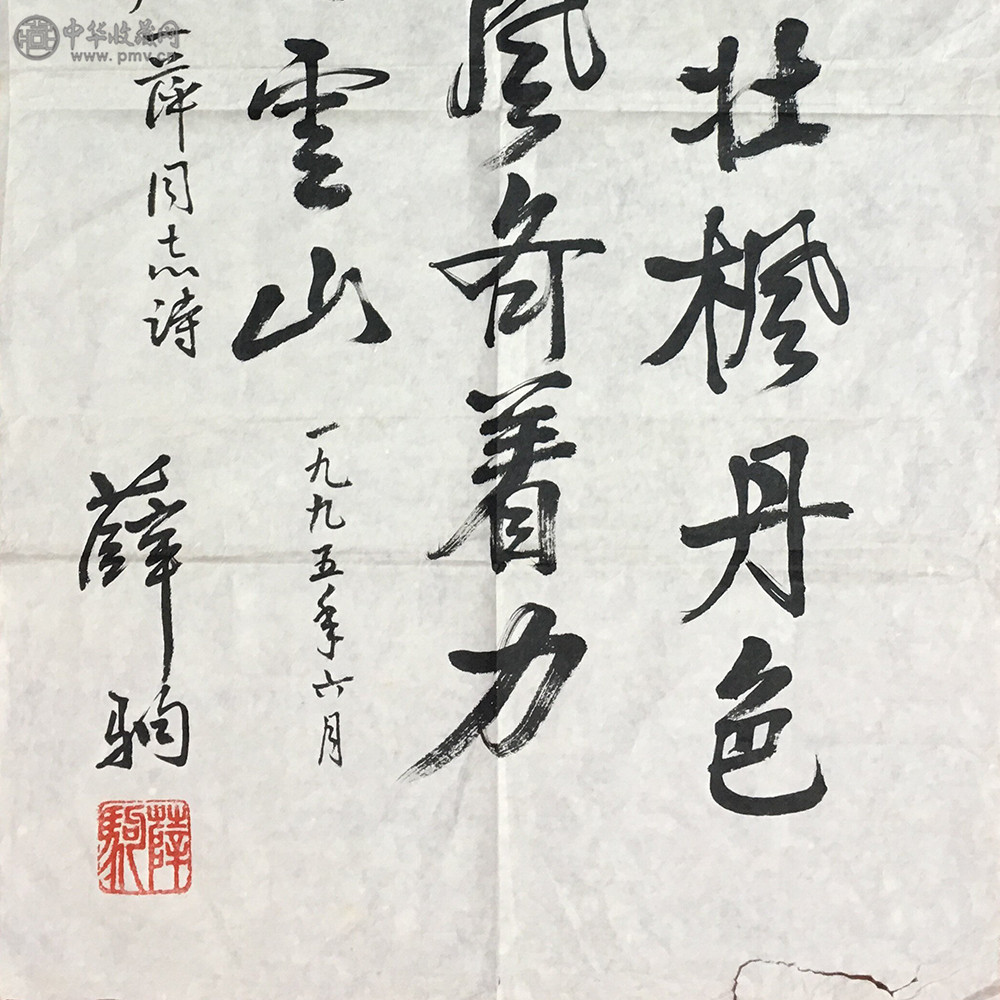 壮枫丹色
风奇着力
云山
一九九五年六月
萍同志诗
薛驹
薛驹
中华收藏网
www.pmv.cn